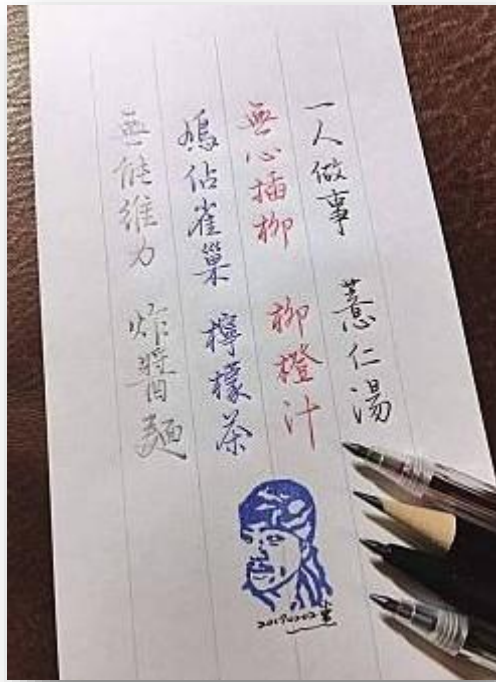 一人做事 薏仁湯
無心插柳 柳橙汁
鳩佔雀巢 檸檬茶
無能維力 炸醬麵
20170202